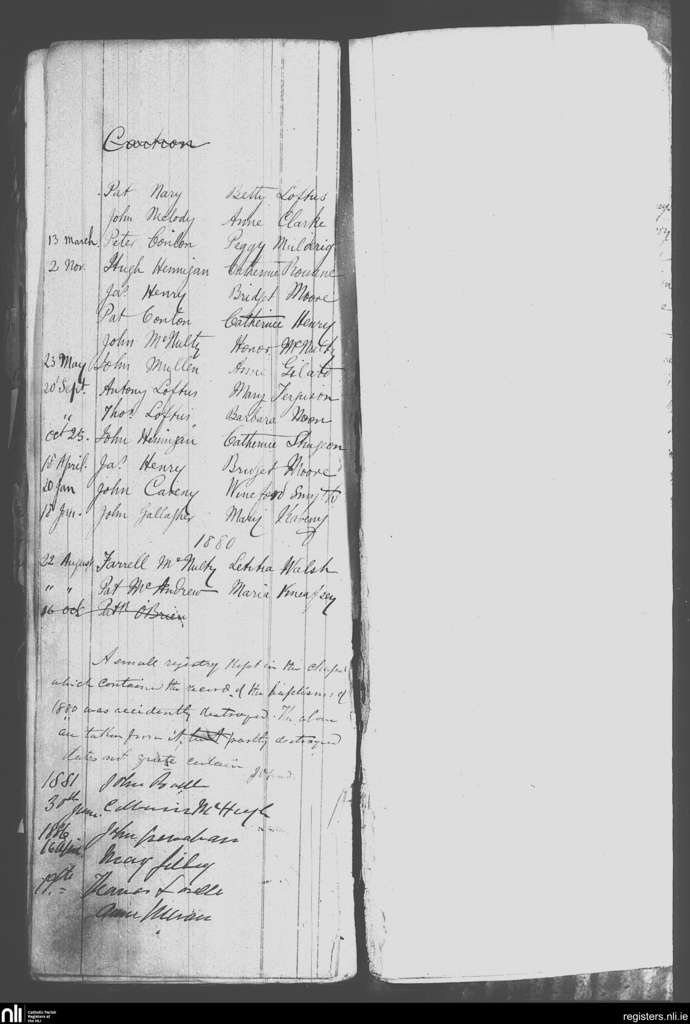 Caution
Pat Nary Betty Loftus
John Melody Anne Clarke
13 March Peter Conlon Peggy Muldrig
2 Nov. Hugh Hennigan Catherine Rouane
Jas. Henry Bridget Moore
Pat Conlon Catherine Henry
John McNulty Honor McNulty
23 May John Mullen Anne
20 Sept. Antony Loftus Mary Ferguson
" Thos. Loftus Barbara Noon
Oct 25. John Hennigan Catherine
18 April. Jas. Henry Bridget Moore
20 Jan John Caveny Winefred Smyth
18 Jan. John Gallagher Mary Kaveny
1880
22 August Farrell McNulty Walsh
" " Pat McAndrew Maria Kneafsey
16 Oct Patk O'Brien
A small registry kept in the chapel
which contained the record of the baptisms of
1880 was accidently destroyed. The above
are taken from it, but partly destroyed
dates not quite certain
1881 John
30th June McHugh
1886 John
16 April Mary
17th Thomas Lavelle
Anne
nli
Catholic Parish
Registers at
the NLI
registers.nli.ie